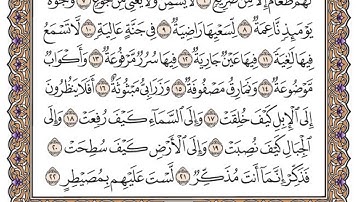 لَهُمْ طَعَامٌ إِلَّا مِن ضَرِيعٍ ٦ لَّا يُسْمِنُ وَلَا يُغْنِي مِن جُوعٍ ٧ وُجُوهٌ
يَوْمَئِذٍ نَّاعِمَةٌ ٨ لِّسَعْيِهَا رَاضِيَةٌ ٩ فِي جَنَّةٍ عَالِيَةٍ ١٠ لَّا تَسْمَعُ
فِيهَا لَاغِيَةً ١١ فِيهَا عَيْنٌ جَارِيَةٌ ١٢ فِيهَا سُرُرٌ مَّرْفُوعَةٌ ١٣ وَأَكْوَابٌ
مَّوْضُوعَةٌ ١٤ وَنَمَارِقُ مَصْفُوفَةٌ ١٥ وَزَرَابِيُّ مَبْثُوثَةٌ ١٦ أَفَلَا يَنظُرُونَ
إِلَى الْإِبِلِ كَيْفَ خُلِقَتْ ١٧ وَإِلَى السَّمَاءِ كَيْفَ رُفِعَتْ ١٨ وَإِلَى
الْجِبَالِ كَيْفَ نُصِبَتْ ١٩ وَإِلَى الْأَرْضِ كَيْفَ سُطِحَتْ ٢٠
فَذَكِّرْ إِنَّمَا أَنتَ مُذَكِّرٌ ٢١ لَّسْتَ عَلَيْهِم بِمُصَيْطِرٍ ٢٢